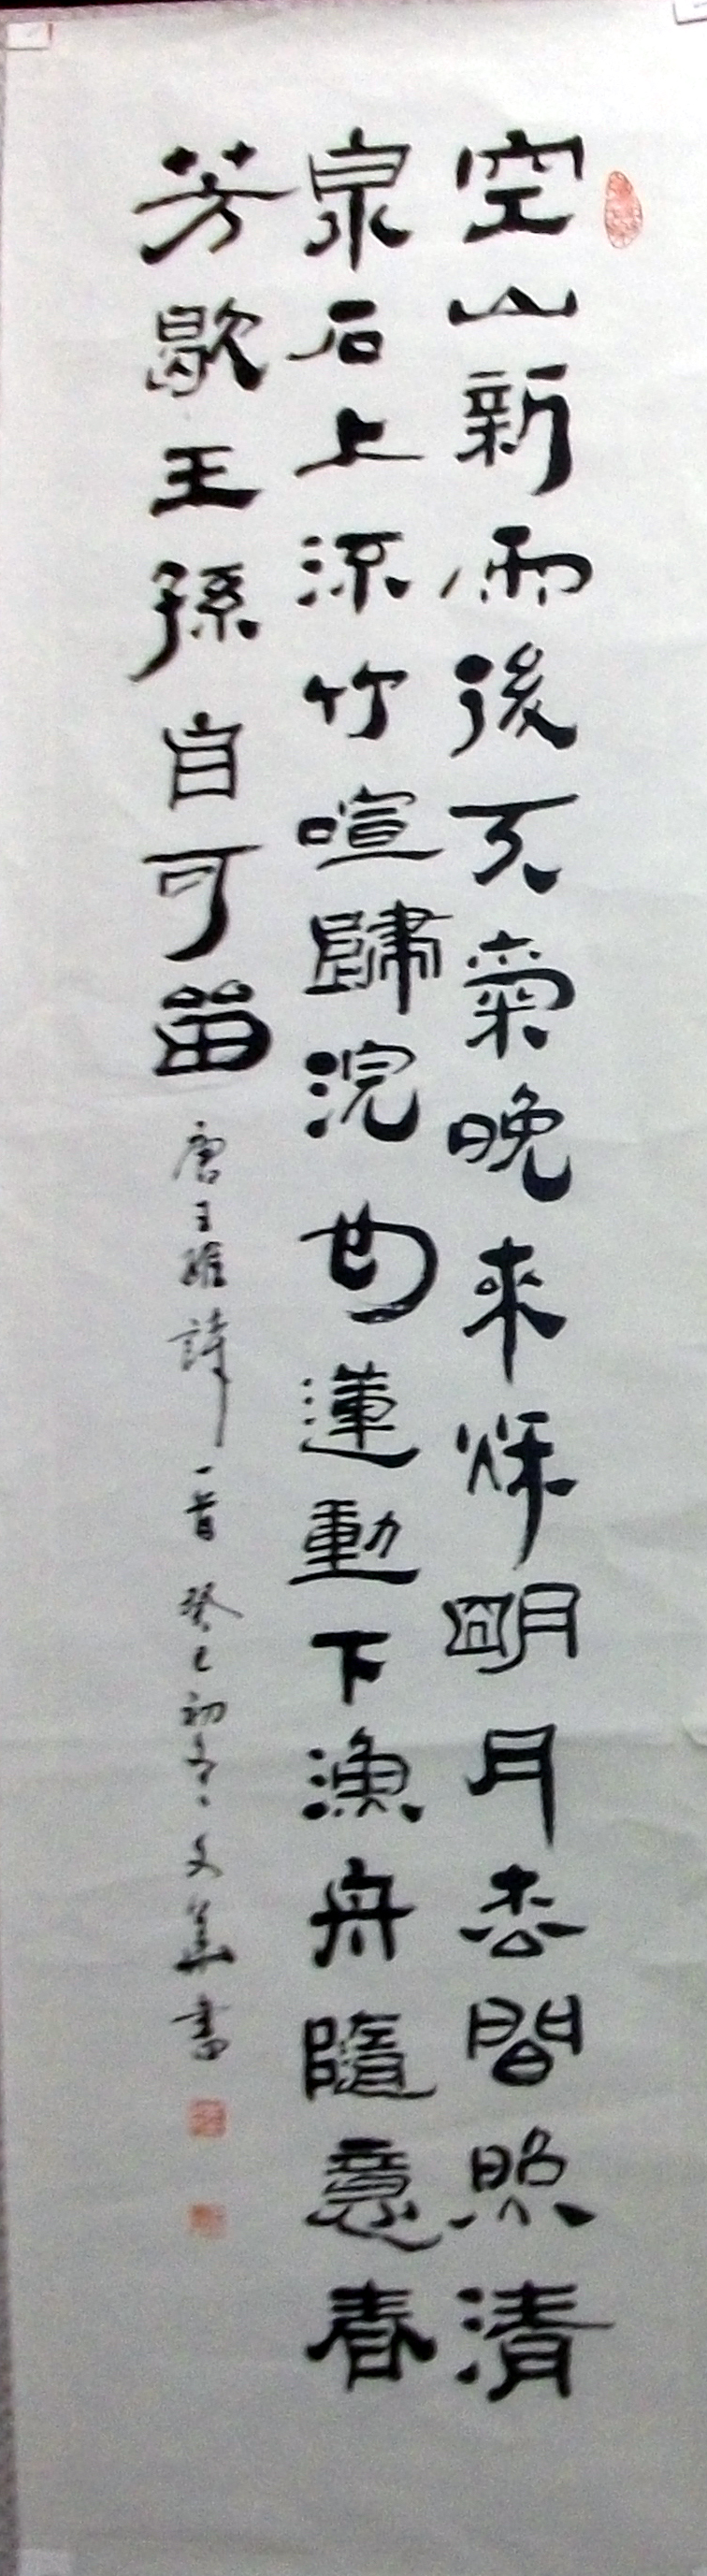 空山新雨後天氣晚來秌朙月枩間照清
泉石上流竹喧歸浣女蓮動下漁舟隨意春
芳歇王孫自可畱
唐王維詩一首 癸巳初冬 文 書